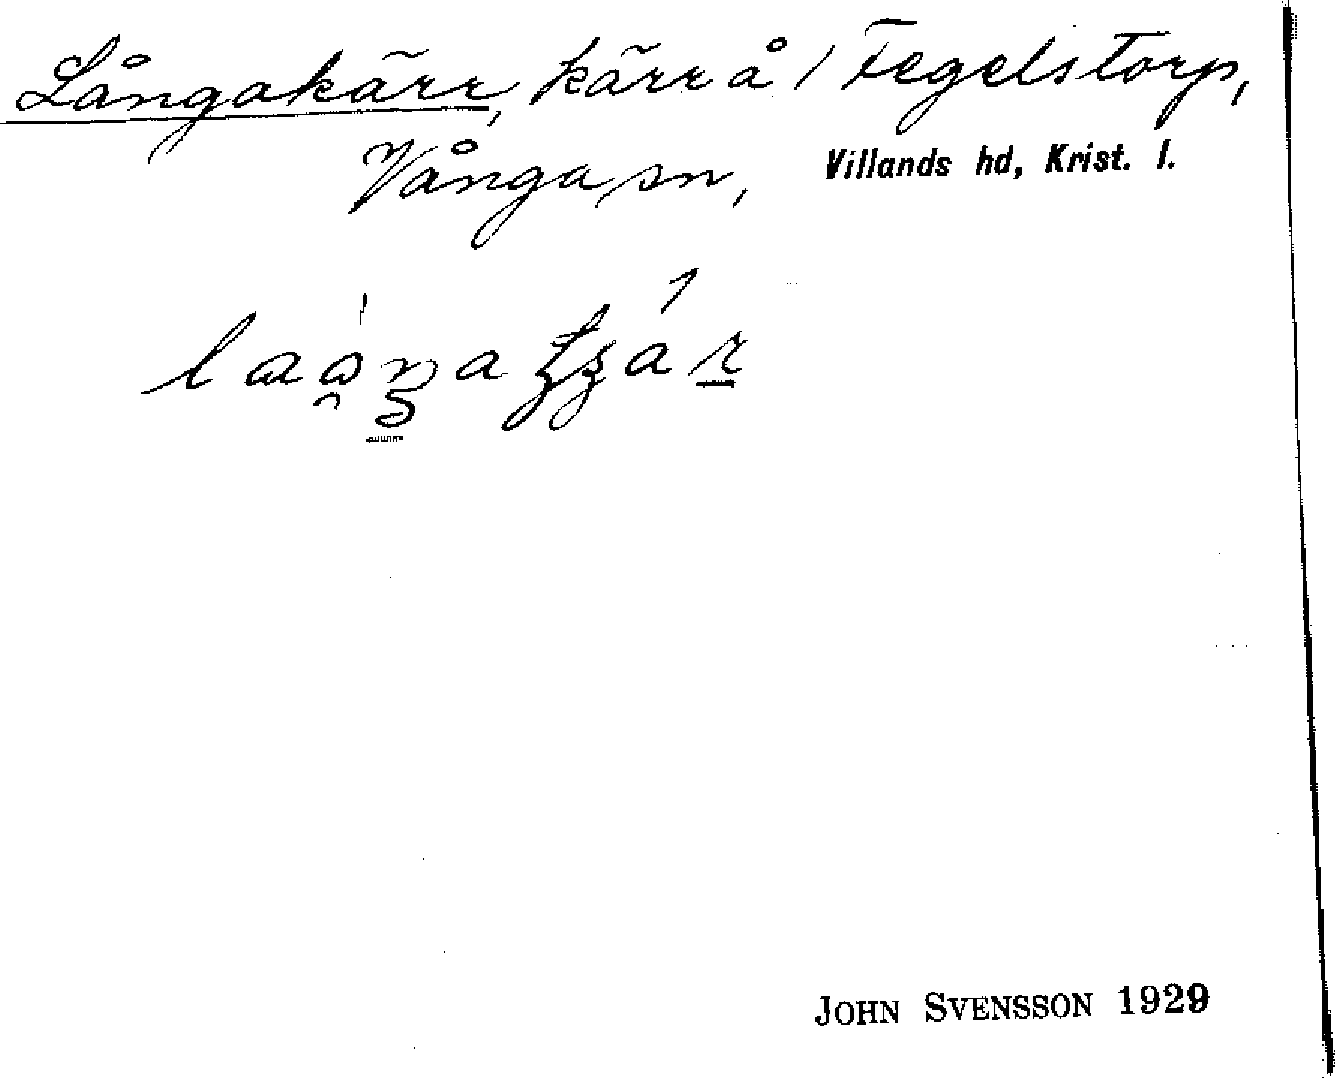 Långakärr, kärr å / Tegelstorp,
Vånga sn, Villands hd, Krist. l.
JOHN SVENSSON 1929